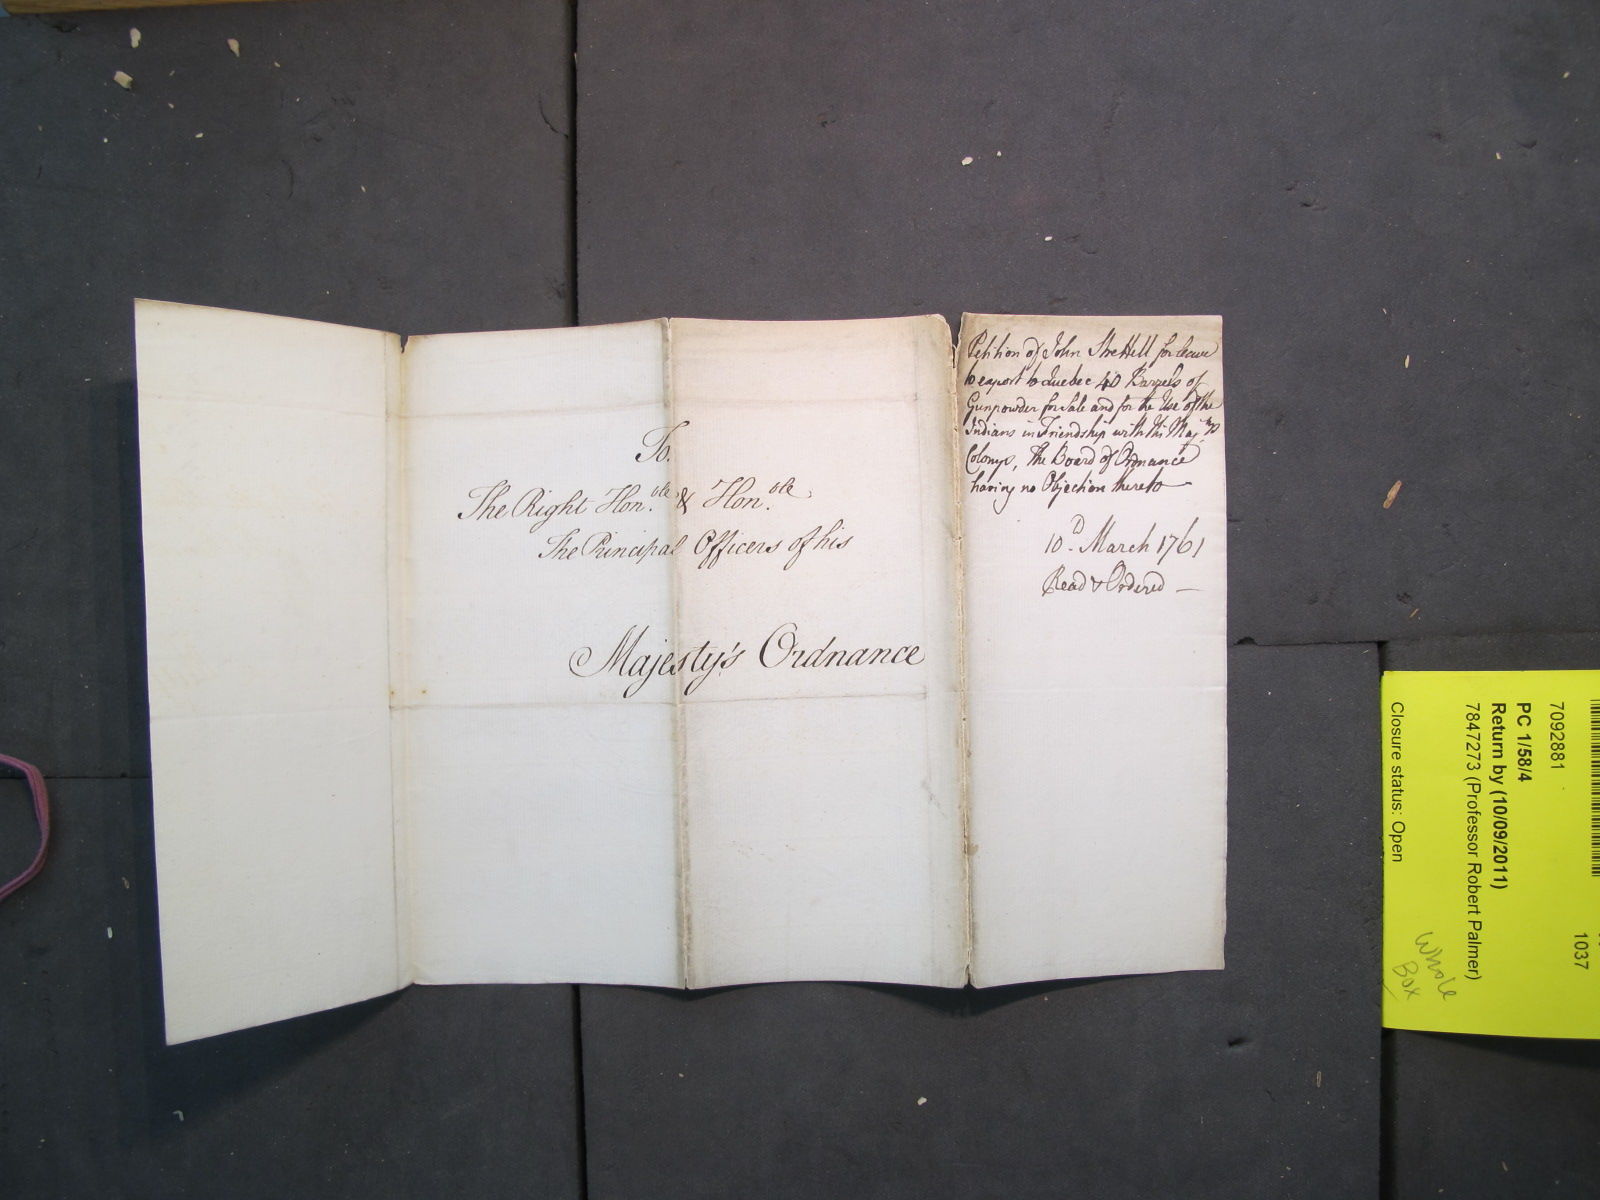 To.
The Right Hon.ble & Hon.ble
The Principal Officers of his
Majesty's Ordnance
Petition of John Strettell for leave
to export to Quebec 40 Barrels of
Gunpowder for Sale and for the Use of the
Indians in Friendship with His Maj.tys
Colonys, The Board of Ordnance
having no Objection thereto
10.D March 1761
Read & Ordered —
7092881
1037
PC 1/58/4
Return by (10/09/2011)
7847273 (Professor Robert Palmer)
Closure status: Open
Whole
Box